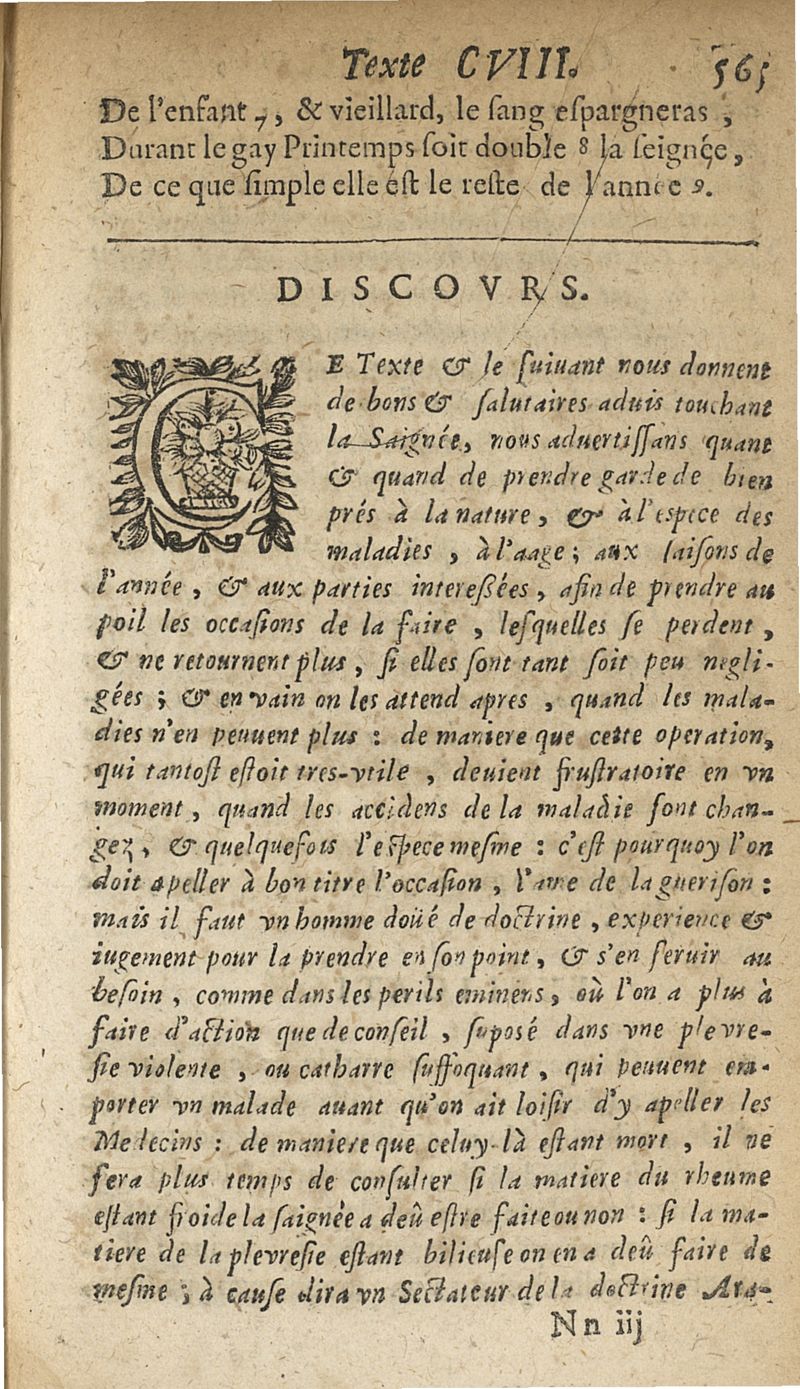 Texte CVIII. 565
De l'enfant 7, & vieillard, le ſang eſpargneras ,
Durant le gay Printemps ſoit double 8 la ſeignée,
De ce que ſimple elle eſt le reſte de l'année 9.
DISCOVRS.
CE Texte & le ſuiuant nous donnent
de bons & ſalutaires aduis touchant
la Saignée, nous aduertiſſans quant
& quand de prendre garde de bien
prés à la nature, & à l'eſpece des
maladies , à l'aage ; aux ſaiſons de
l'année , & aux parties intereßées, afin de prendre au
poil les occaſions de la faire , leſquelles ſe perdent ,
& ne retournent plus , ſi elles ſont tant ſoit peu negli-
gées ; & en vain on les attend apres , quand les mala-
dies n'en peuuent plus : de maniere que cette operation,
qui tantoſt eſtoit tres-vtile , deuient fruſtratoire en vn
moment , quand les accidens de la maladie ſont chan-
gez , & quelquefois l'eſpece meſme : c'eſt pourquoy l'on
doit apeller à bon titre l'occaſion , l'ame de la gueriſon :
mais il faut vn homme doüé de doctrine , experience &
iugement pour la prendre en ſon point , & s'en ſeruir au
beſoin , comme dans les perils eminens, où l'on a plus à
faire d'action que de conſeil , ſupoſé dans vne plevre-
ſie violente , ou catharre ſuffoquant , qui peuuent em-
porter vn malade auant qu'on ait loiſir d'y apeller les
Medecins : de maniere que celuy-là eſtant mort , il ne
ſera plus temps de conſulter ſi la matiere du rheume
eſtant froide la ſaignée a deû eſtre faite ou non : ſi la ma-
tiere de la plevreſie eſtant bilieuſe on en a deû faire de
meſme ; à cauſe dira vn Sectateur de la doctrine Ara-
Nn iij